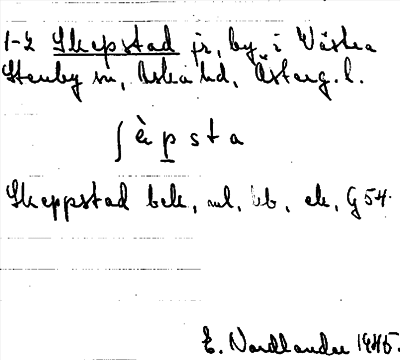 1-2 Skepstad jr, by, i Västra
Stenby sn, Aska hd, Österg. l.
ʃèpsta
Skeppstad bek, ml, bb, ek, G 54.
E. Nordlander 1945.